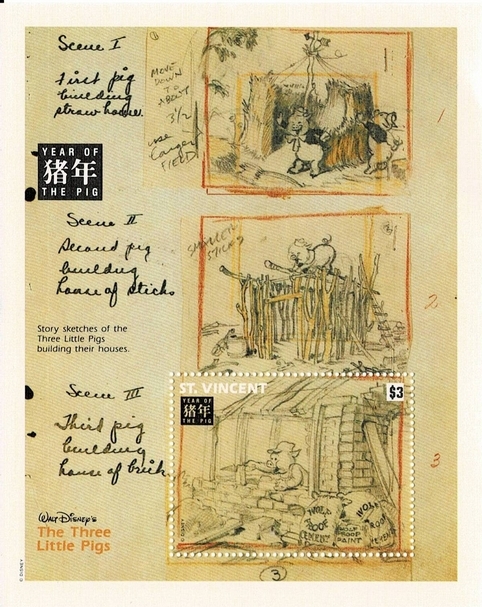 Scene I
First pig
building
straw house.
1
MOVE
DOWN
TO
ABOUT
3 1/2
use
Larger
FIELD
1
YEAR OF
猪年
THE PIG
Scene II
Second pig
building
house of sticks
SMALLER
STICKS
2
Story sketches of the
Three Little Pigs
building their houses.
Scene III
Third pig
building
house of brick
3
ST. VINCENT
$3
YEAR OF
猪年
THE PIG
WOLF
PROOF
CEMENT
WOLF
PROOF
PAINT
WOLF
PROOF
CEMENT
© DISNEY
Walt Disney's
The Three
Little Pigs
3
© DISNEY